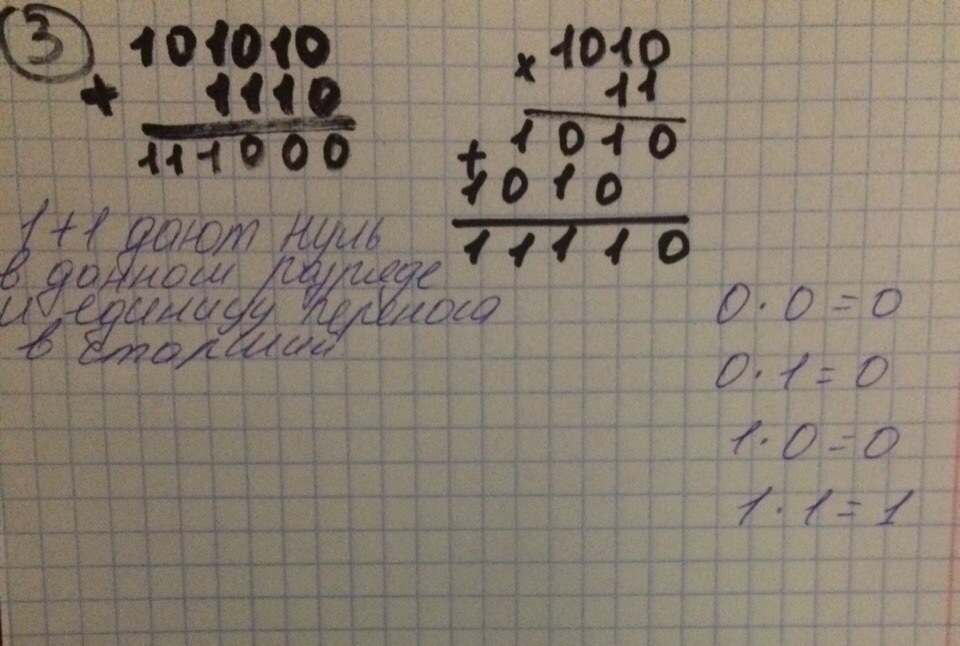 3
101010
+ 1110
111000
1+1 дают нуль
в данном разряде
и единицу переноса
в старший
× 1010
11
1010
+
1010
11110
0·0=0
0·1=0
1·0=0
1·1=1